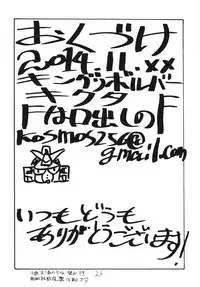 おくづけ
2014.11.××
キングリボルバー
キクタ
Fは口出しのF
kosmos256@
g-mail.com
いつもどうも
ありがとうございます!
23